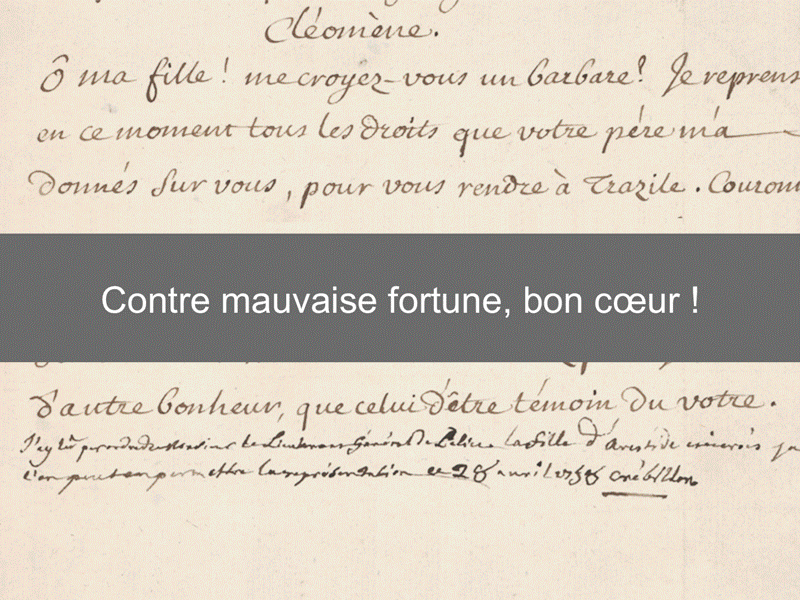 Cléomène.
Ô ma fille ! me croyez-vous un barbare ? Je reprens
en ce moment tous les droits que votre pére m'a
donnés sur vous, pour vous rendre à Trazile. Couron
Contre mauvaise fortune, bon cœur !
d'autre bonheur, que celui d'être témoin du votre.
J'ay lû par ordre de Monsieur le Lieutenant Général de Police la fille d'Aristide et je crois
l'on peut en permettre la représentation ce 28 avril 1758 Crébillon